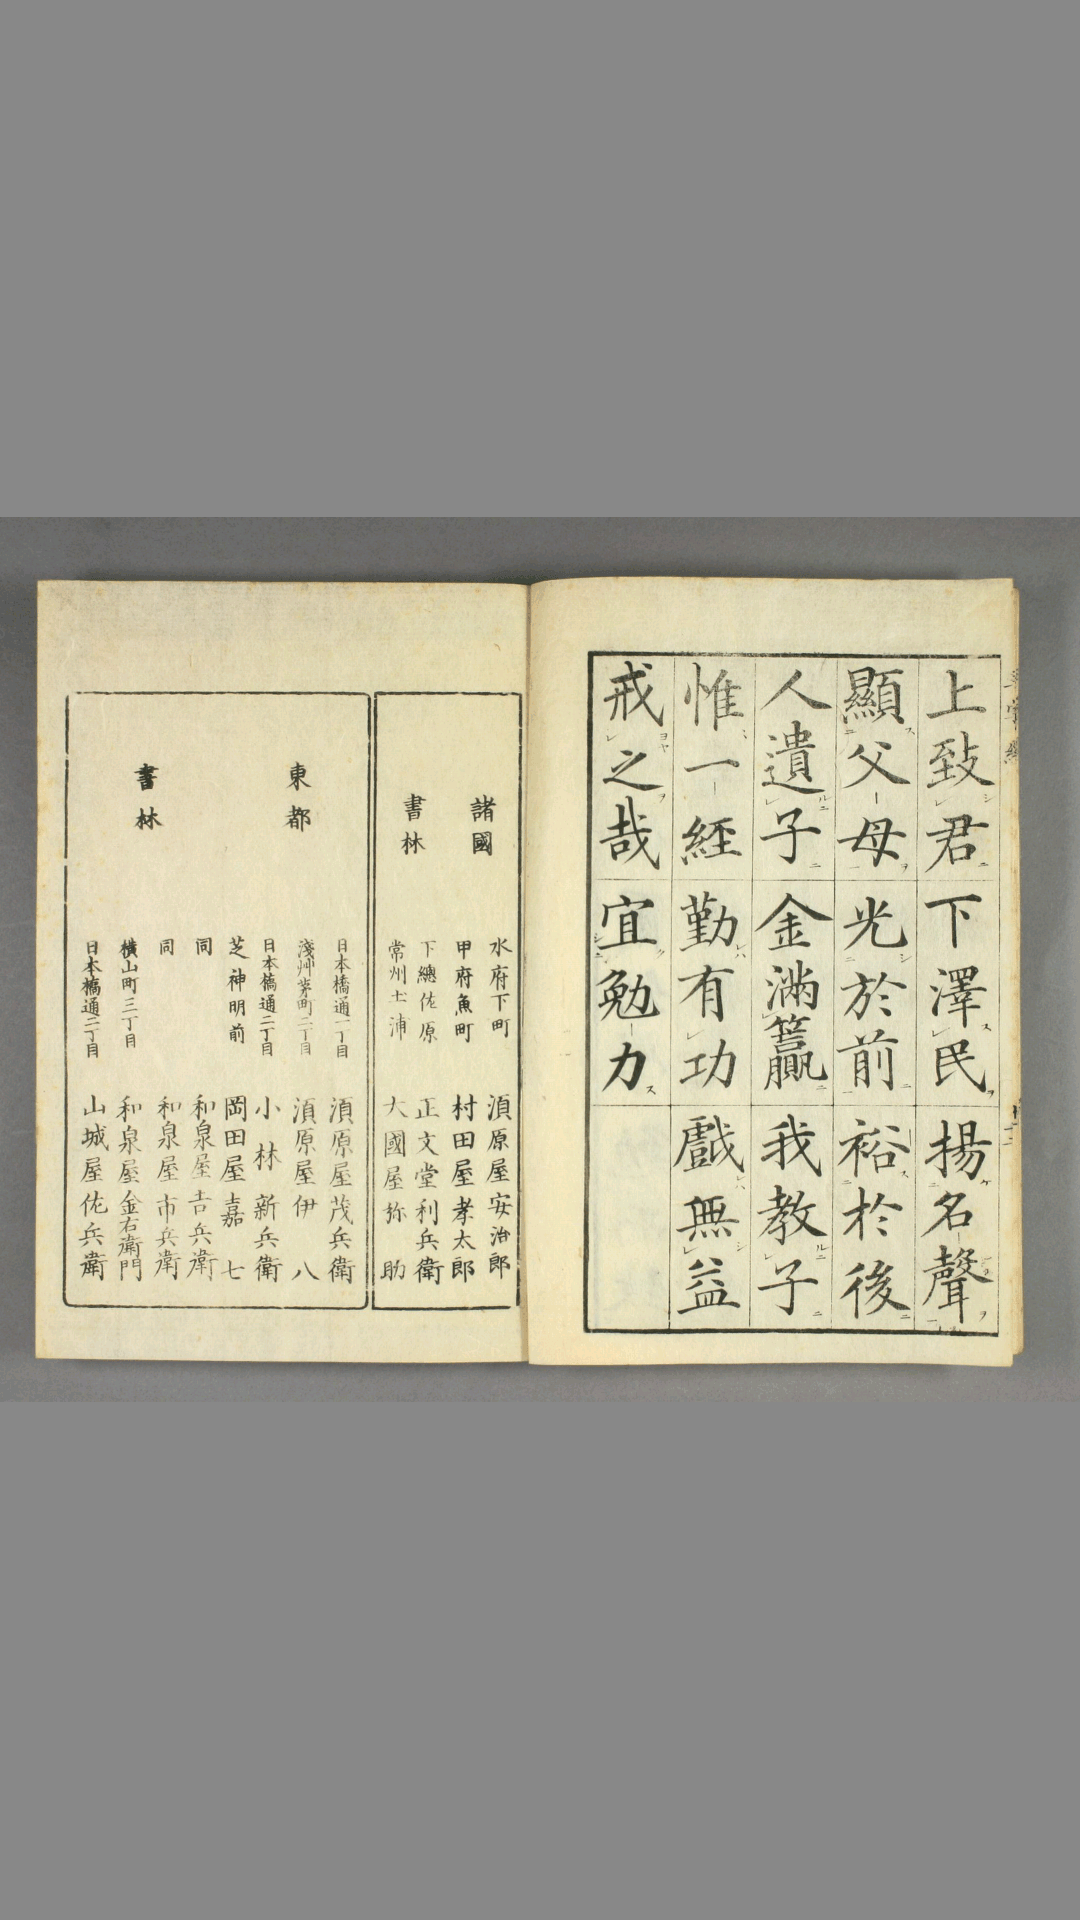 上致君下澤民揚名聲
顯父母光於前裕於後
人遺子金滿籯我教子
惟一經勤有功戲無益
戒之哉宜勉力
諸國
書林
水府下町 須原屋安治郎
甲府魚町 村田屋孝太郎
下總佐原 正文堂利兵衛
常州土浦 大國屋弥助
東都
書林
日本橋通一丁目 須原屋茂兵衛
淺艸茅町二丁目 須原屋伊八
日本橋通二丁目 小林新兵衛
芝神明前 岡田屋嘉七
同 和泉屋吉兵衛
同 和泉屋市兵衛
横山町三丁目 和泉屋金右衛門
日本橋通二丁目 山城屋佐兵衛